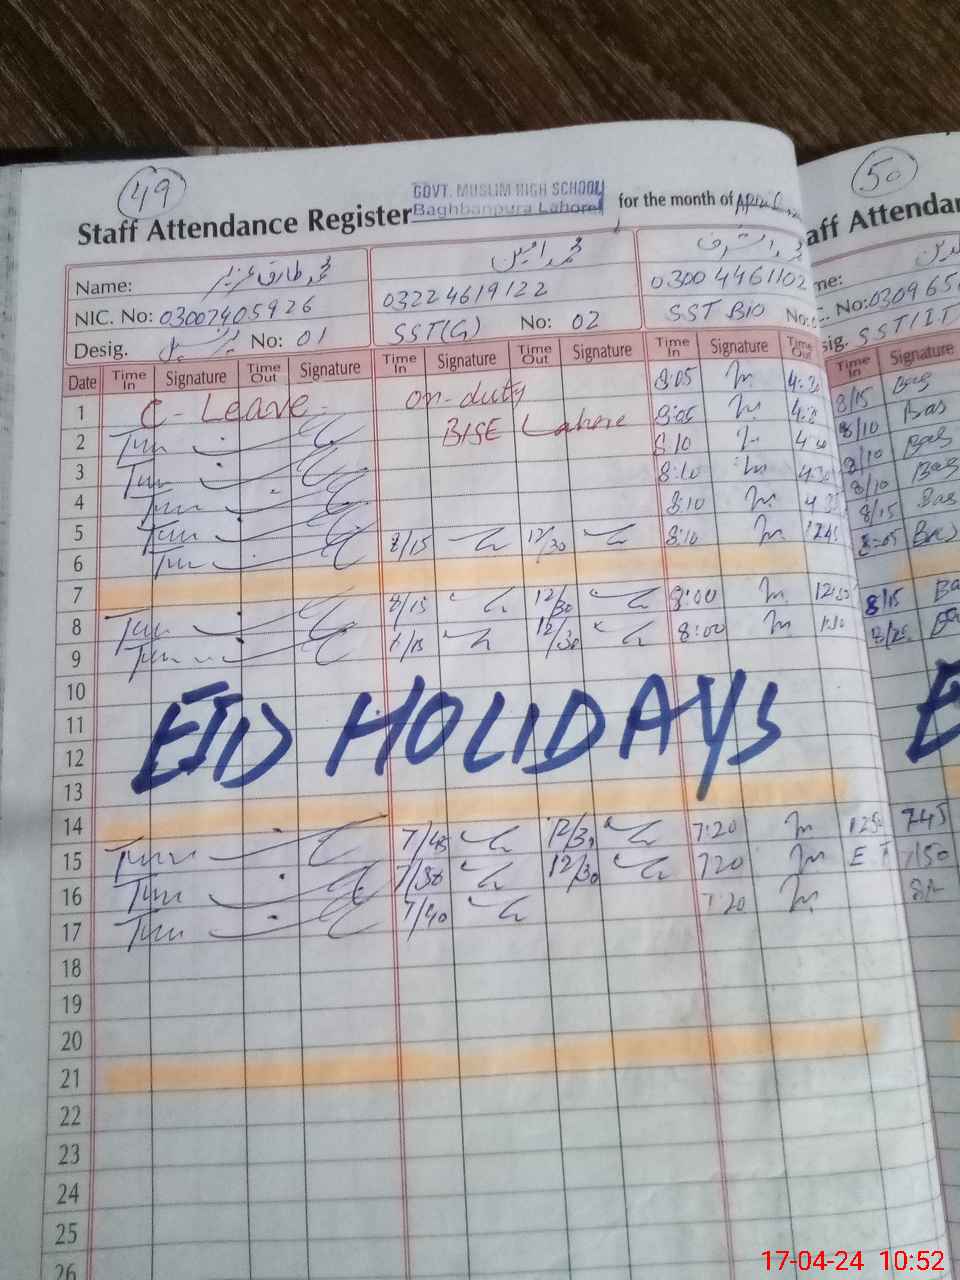 49
50
GOVT. MUSLIM HIGH SCHOOL
Staff Attendance Register Baghbanpura Lahore for the month of
aff Attendan
Name: محمد طارق عزیز
محمد امین
محمد اشرف
me:
NIC. No: 03007405926
03224619122
0300 4461102
C. No: 030965
Desig. پرنسپل No: 01
SST(G) No: 02
SST BIO No:
sig. SST/IT
Date Time In Signature Time Out Signature Time In Signature Time Out Signature Time In Signature Time Out
Time In Signature
1 C-Leave on-duty 8:05
8/15 Bas
2 BISE Lahore 8:05
8/10 Bas
3 8:10
8/10 Bas
4 8:10
8/10 Bas
5 8:10
8/15 Bas
6 8/15 12/30 8:10 1245
8:05 Bas
7
8 8/15 12/30 8:00
8/15
9 8/15 12/30 8:00
8/25
10
11 EID HOLIDAYS
12
13
14
15 7/45 12/30 7:20
745
16 7/30 12/30 720
7/50
17 7/40 7:20
18
19
20
21
22
23
24
25
26
17-04-24 10:52